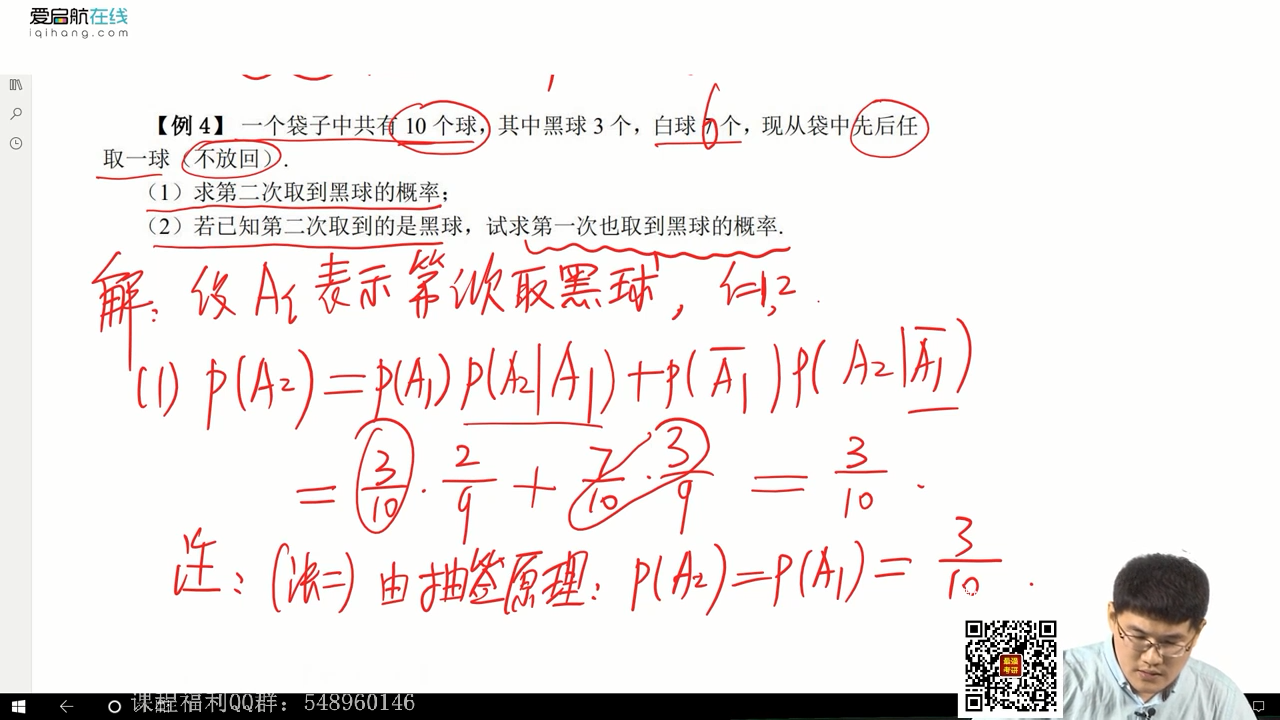 爱启航在线
iqihang.com
【例 4】 一个袋子中共有 10 个球，其中黑球 3 个，白球 7 个，现从袋中先后任
取一球（不放回）.
（1）求第二次取到黑球的概率；
（2）若已知第二次取到的是黑球，试求第一次也取到黑球的概率.
解：设 Ai 表示第i次取黑球，i=1,2.
(1) P(A2)=P(A1)P(A2|A1)+P(A̅1)P(A2|A̅1)
= 3/10 · 2/9 + 7/10 · 3/9 = 3/10 .
注：(法二) 由抽签原理：P(A2)=P(A1)= 3/10 .
最强
考研
课程福利QQ群：548960146